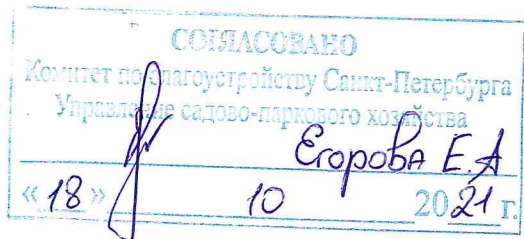 СОГЛАСОВАНО
Комитет по благоустройству Санкт-Петербурга
Управление садово-паркового хозяйства
Егорова Е.А
«18» 10 2021 г.